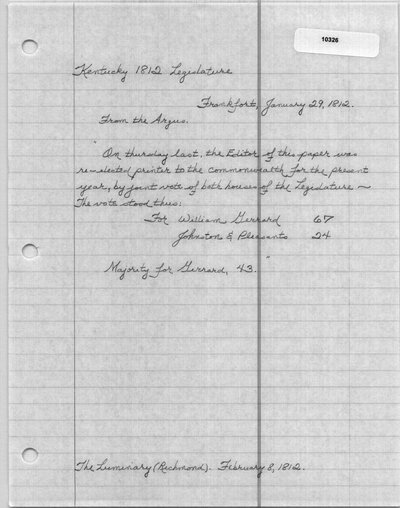 10326
Kentucky 1812 Legislature
Frankfort, January 29, 1812.
From the Argus.
"On thursday last, the Editor of this paper was
re-elected printer to the commonwealth for the present
year, by joint vote of both houses of the Legislature ~
The vote stood thus:
For William Gerrard 67
Johnston & Pleasants 24
Majority for Gerrard, 43."
The Luminary (Richmond). February 8, 1812.